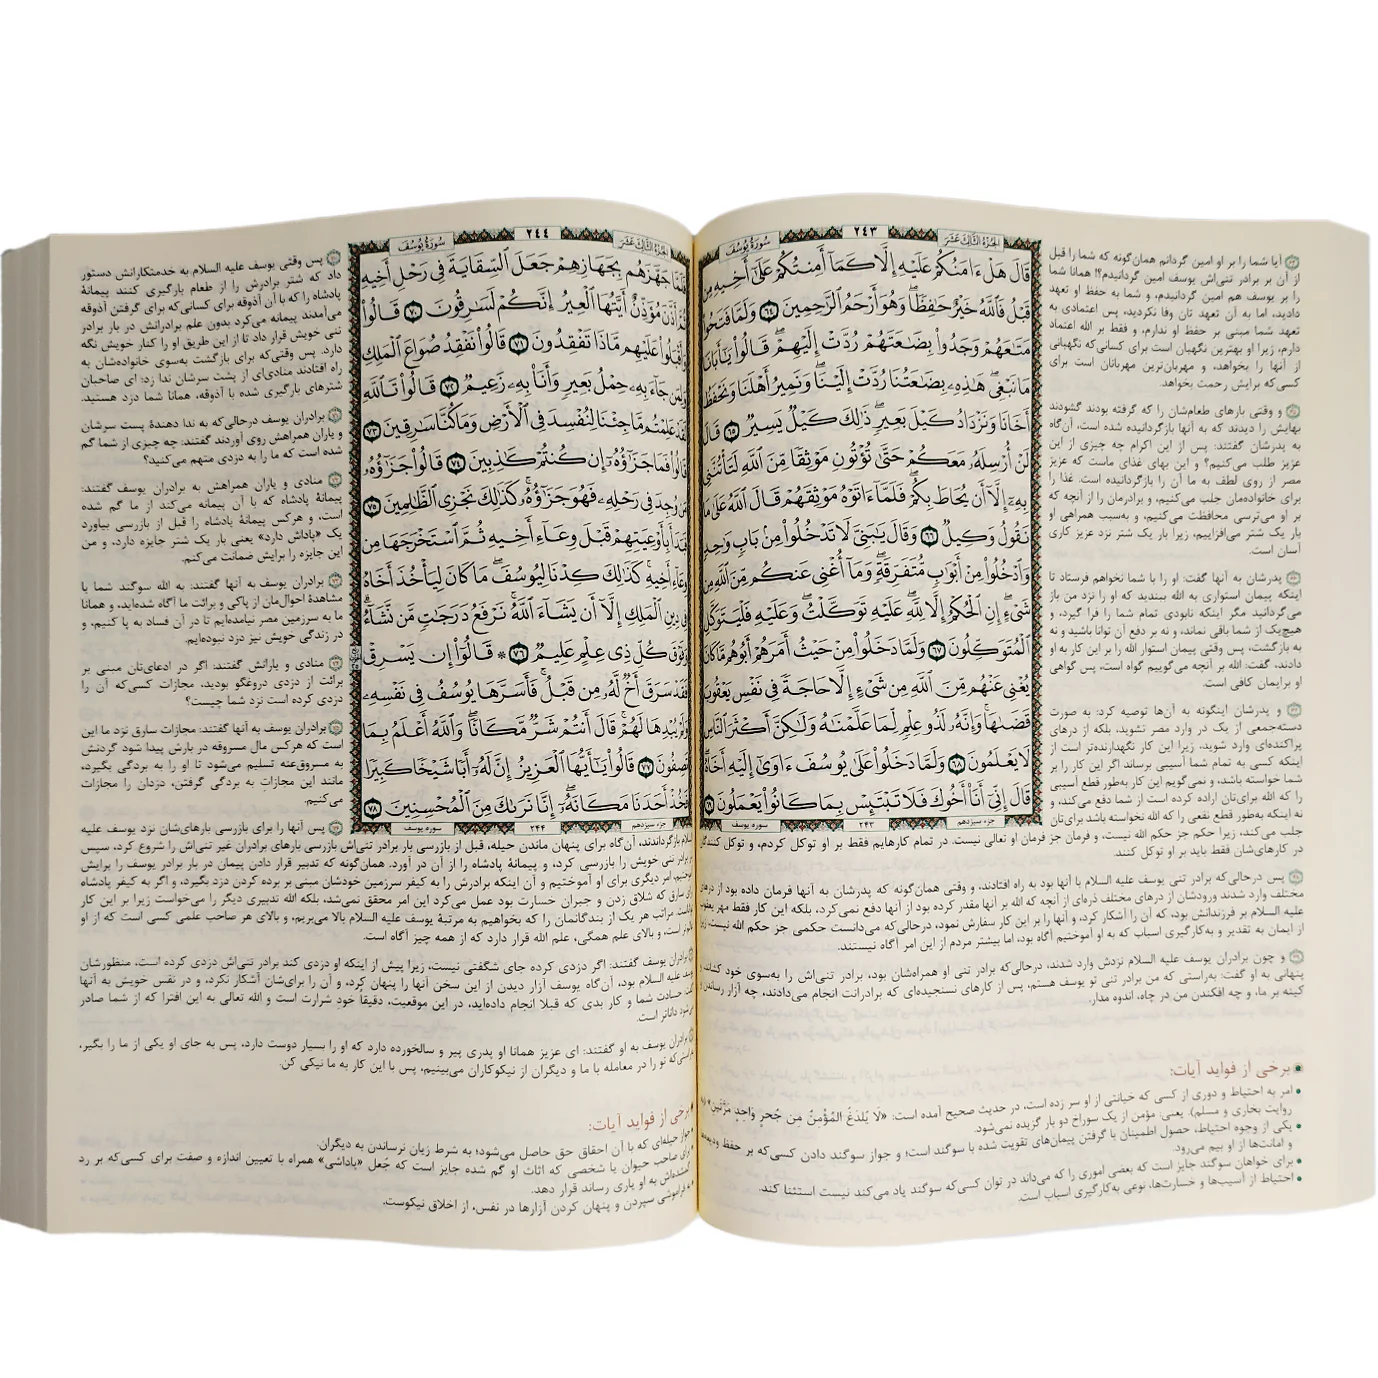 سُورَةُ يُوسُفَ
٢٤٣
الجُزْءُ الثَّالِثَ عَشَرَ
قَالَ هَلْ ءَامَنُكُمْ عَلَيْهِ إِلَّا كَمَآ أَمِنتُكُمْ عَلَىٰٓ أَخِيهِ مِن
قَبْلُ فَٱللَّهُ خَيْرٌ حَٰفِظًا وَهُوَ أَرْحَمُ ٱلرَّٰحِمِينَ ٦٤ وَلَمَّا فَتَحُوا۟
مَتَٰعَهُمْ وَجَدُوا۟ بِضَٰعَتَهُمْ رُدَّتْ إِلَيْهِمْ قَالُوا۟ يَٰٓأَبَانَا
مَا نَبْغِى هَٰذِهِۦ بِضَٰعَتُنَا رُدَّتْ إِلَيْنَا وَنَمِيرُ أَهْلَنَا وَنَحْفَظُ
أَخَانَا وَنَزْدَادُ كَيْلَ بَعِيرٍ ذَٰلِكَ كَيْلٌ يَسِيرٌ ٦٥ قَالَ
لَنْ أُرْسِلَهُۥ مَعَكُمْ حَتَّىٰ تُؤْتُونِ مَوْثِقًا مِّنَ ٱللَّهِ لَتَأْتُنَّنِى
بِهِۦٓ إِلَّآ أَن يُحَاطَ بِكُمْ فَلَمَّآ ءَاتَوْهُ مَوْثِقَهُمْ قَالَ ٱللَّهُ عَلَىٰ مَا
نَقُولُ وَكِيلٌ ٦٦ وَقَالَ يَٰبَنِىَّ لَا تَدْخُلُوا۟ مِنۢ بَابٍ وَٰحِدٍ
وَٱدْخُلُوا۟ مِنْ أَبْوَٰبٍ مُّتَفَرِّقَةٍ وَمَآ أُغْنِى عَنكُم مِّنَ ٱللَّهِ مِن
شَىْءٍ إِنِ ٱلْحُكْمُ إِلَّا لِلَّهِ عَلَيْهِ تَوَكَّلْتُ وَعَلَيْهِ فَلْيَتَوَكَّلِ
ٱلْمُتَوَكِّلُونَ ٦٧ وَلَمَّا دَخَلُوا۟ مِنْ حَيْثُ أَمَرَهُمْ أَبُوهُم مَّا كَانَ
يُغْنِى عَنْهُم مِّنَ ٱللَّهِ مِن شَىْءٍ إِلَّا حَاجَةً فِى نَفْسِ يَعْقُوبَ
قَضَىٰهَا وَإِنَّهُۥ لَذُو عِلْمٍ لِّمَا عَلَّمْنَٰهُ وَلَٰكِنَّ أَكْثَرَ ٱلنَّاسِ
لَا يَعْلَمُونَ ٦٨ وَلَمَّا دَخَلُوا۟ عَلَىٰ يُوسُفَ ءَاوَىٰٓ إِلَيْهِ أَخَاهُ
قَالَ إِنِّىٓ أَنَا۠ أَخُوكَ فَلَا تَبْتَئِسْ بِمَا كَانُوا۟ يَعْمَلُونَ ٦٩
جزء سیزدهم
٢٤٣
سوره یوسف
آیا شما را بر او امین گردانم همان‌گونه که شما را قبل
از آن بر برادر تنی‌اش یوسف امین گردانیدم؟! همانا شما
را بر یوسف هم امین گردانیدم، و شما به حفظ او تعهد
دادید، اما به آن تعهد تان وفا نکردید، پس اعتمادی به
تعهد شما مبنی بر حفظ او ندارم، و فقط بر الله اعتماد
دارم، زیرا او بهترین نگهبان است برای کسانی‌که نگهبانی
از آنها را بخواهد، و مهربان‌ترین مهربانان است برای
کسی‌که برایش رحمت بخواهد.
و وقتی بارهای طعام‌شان را که گرفته بودند گشودند
بهایش را دیدند که به آنها بازگردانیده شده است، آن‌گاه
به پدرشان گفتند: پس از این اکرام چه چیزی از این
عزیز طلب می‌کنیم؟ و این بهای غذای ماست که عزیز
مصر از روی لطف به ما آن را بازگردانیده است. غذا را
برای خانواده‌مان جلب می‌کنیم، و برادرمان را از آنچه که
بر او می‌ترسی محافظت می‌کنیم، و به‌سبب همراهی او
بار یک شتر می‌افزاییم، زیرا بار یک شتر نزد عزیز کاری
آسان است.
پدرشان به آنها گفت: او را با شما نخواهم فرستاد تا
اینکه پیمان استواری به الله ببندید که او را نزد من باز
می‌گردانید مگر اینکه نابودی تمام شما را فرا گیرد، و
هیچ‌یک از شما باقی نماند، و نه بر دفع آن توانا باشید و نه
به بازگشت، پس وقتی پیمان استوار الله را بر این کار به او
دادند، گفت: الله بر آنچه می‌گوییم گواه است، پس گواهی
او برایمان کافی است.
و پدرشان اینگونه به آن‌ها توصیه کرد: به صورت
دسته‌جمعی از یک در وارد مصر نشوید، بلکه از درهای
پراکنده‌ای وارد شوید، زیرا این کار نگهدارنده‌تر است از
اینکه کسی به تمام شما آسیبی برساند اگر این کار را بر
شما خواسته باشد، و نمی‌گویم این کار به‌طور قطع آسیبی
را که الله برای‌تان اراده کرده است از شما دفع می‌کند، و
نه اینکه به‌طور قطع نفعی را که الله نخواسته باشد برای‌تان
جلب می‌کند، زیرا حکم جز حکم الله نیست، و فرمان جز فرمان او تعالی نیست. در تمام کارهایم فقط بر او توکل کردم، و توکل کنندگان
در کارهای‌شان فقط باید بر او توکل کنند.
پس درحالی‌که برادر تنی یوسف علیه السلام با آنها بود به راه افتادند، و وقتی همان‌گونه که پدرشان به آنها فرمان داده بود از درهای
مختلف وارد شدند ورودشان از درهای مختلف ذره‌ای از آنچه که الله بر آنها مقدر کرده بود از آنها دفع نمی‌کرد، بلکه این کار فقط مهر یعقوب
علیه السلام بر فرزندانش بود، که آن را آشکار کرد، و آنها را بر این کار سفارش نمود، درحالی‌که می‌دانست حکمی جز حکم الله نیست، زیرا
از ایمان به تقدیر و به‌کارگیری اسباب که به او آموختیم آگاه بود، اما بیشتر مردم از این امر آگاه نیستند.
و چون برادران یوسف علیه السلام نزدش وارد شدند، درحالی‌که برادر تنی او همراه‌شان بود، برادر تنی‌اش را به‌سوی خود کشاند، و
پنهانی به او گفت: به‌راستی که من برادر تنی تو یوسف هستم، پس از کارهای نسنجیده‌ای که برادرانت انجام می‌دادند، چه آزار رساندن و
کینه بر ما، و چه افکندن من در چاه، اندوه مدار.
برخی از فواید آیات:
• امر به احتیاط و دوری از کسی که خیانتی از او سر زده است، در حدیث صحیح آمده است: «لَا يُلدَغُ المُؤْمِنُ مِن جُحرٍ وَاحِدٍ مَرَّتَينِ»
روایت بخاری و مسلم). یعنی: مؤمن از یک سوراخ دو بار گزیده نمی‌شود.
• یکی از وجوه احتیاط، حصول اطمینان با گرفتن پیمان‌های تقویت شده با سوگند است؛ و جواز سوگند دادن کسی‌که بر حفظ ودیعه‌ها
و امانت‌ها از او بیم می‌رود.
• برای خواهان سوگند جایز است که بعضی اموری را که می‌داند در توان کسی‌که سوگند یاد می‌کند نیست استثنا کند.
• احتیاط از آسیب‌ها و خسارت‌ها، نوعی به‌کارگیری اسباب است.
سُورَةُ يُوسُفَ
٢٤٤
الجُزْءُ الثَّالِثَ عَشَرَ
فَلَمَّا جَهَّزَهُم بِجَهَازِهِمْ جَعَلَ ٱلسِّقَايَةَ فِى رَحْلِ أَخِيهِ
ثُمَّ أَذَّنَ مُؤَذِّنٌ أَيَّتُهَا ٱلْعِيرُ إِنَّكُمْ لَسَٰرِقُونَ ٧٠ قَالُوا۟
وَأَقْبَلُوا۟ عَلَيْهِم مَّاذَا تَفْقِدُونَ ٧١ قَالُوا۟ نَفْقِدُ صُوَاعَ ٱلْمَلِكِ
وَلِمَن جَآءَ بِهِۦ حِمْلُ بَعِيرٍ وَأَنَا۠ بِهِۦ زَعِيمٌ ٧٢ قَالُوا۟ تَٱللَّهِ
لَقَدْ عَلِمْتُم مَّا جِئْنَا لِنُفْسِدَ فِى ٱلْأَرْضِ وَمَا كُنَّا سَٰرِقِينَ ٧٣
قَالُوا۟ فَمَا جَزَٰٓؤُهُۥٓ إِن كُنتُمْ كَٰذِبِينَ ٧٤ قَالُوا۟ جَزَٰٓؤُهُۥ
مَن وُجِدَ فِى رَحْلِهِۦ فَهُوَ جَزَٰٓؤُهُۥ كَذَٰلِكَ نَجْزِى ٱلظَّٰلِمِينَ ٧٥
فَبَدَأَ بِأَوْعِيَتِهِمْ قَبْلَ وِعَآءِ أَخِيهِ ثُمَّ ٱسْتَخْرَجَهَا مِن
وِعَآءِ أَخِيهِ كَذَٰلِكَ كِدْنَا لِيُوسُفَ مَا كَانَ لِيَأْخُذَ أَخَاهُ
فِى دِينِ ٱلْمَلِكِ إِلَّآ أَن يَشَآءَ ٱللَّهُ نَرْفَعُ دَرَجَٰتٍ مَّن نَّشَآءُ
وَفَوْقَ كُلِّ ذِى عِلْمٍ عَلِيمٌ ٧٦ * قَالُوٓا۟ إِن يَسْرِقْ
فَقَدْ سَرَقَ أَخٌ لَّهُۥ مِن قَبْلُ فَأَسَرَّهَا يُوسُفُ فِى نَفْسِهِۦ
وَلَمْ يُبْدِهَا لَهُمْ قَالَ أَنتُمْ شَرٌّ مَّكَانًا وَٱللَّهُ أَعْلَمُ بِمَا
تَصِفُونَ ٧٧ قَالُوا۟ يَٰٓأَيُّهَا ٱلْعَزِيزُ إِنَّ لَهُۥٓ أَبًا شَيْخًا كَبِيرًا
فَخُذْ أَحَدَنَا مَكَانَهُۥٓ إِنَّا نَرَىٰكَ مِنَ ٱلْمُحْسِنِينَ ٧٨
جزء سیزدهم
٢٤٤
سوره یوسف
پس وقتی یوسف علیه السلام به خدمتکارانش دستور
داد که شتر برادرش را از طعام بارگیری کنند پیمانهٔ
پادشاه را که با آن آذوقه برای کسانی‌که برای گرفتن آذوقه
می‌آمدند پیمانه می‌کرد بدون علم برادرانش در بار برادر
تنی خویش قرار داد تا از این طریق او را کنار خویش نگه
دارد. پس وقتی‌که برای بازگشت به‌سوی خانواده‌شان به
راه افتادند منادی‌ای از پشت سرشان ندا زد: ای صاحبان
شترهای بارگیری شده با آذوقه، همانا شما دزد هستید.
برادران یوسف درحالی‌که به ندا دهندهٔ پست سرشان
و یاران همراهش روی آوردند گفتند: چه چیزی از شما گم
شده است که ما را به دزدی متهم می‌کنید؟
منادی و یاران همراهش به برادران یوسف گفتند:
پیمانهٔ پادشاه که با آن پیمانه می‌کند از ما گم شده
است، و هرکس پیمانهٔ پادشاه را قبل از بازرسی بیاورد
یک «پاداش دارد» یعنی بار یک شتر جایزه دارد، و من
این جایزه را برایش ضمانت می‌کنم.
برادران یوسف به آنها گفتند: به الله سوگند شما با
مشاهدهٔ احوال‌مان از پاکی و برائت ما آگاه شده‌اید، و همانا
ما به سرزمین مصر نیامده‌ایم تا در آن فساد به پا کنیم، و
در زندگی خویش نیز دزد نبوده‌ایم.
منادی و یارانش گفتند: اگر در ادعای‌تان مبنی بر
برائت از دزدی دروغگو بودید، مجازات کسی‌که آن را
دزدی کرده است نزد شما چیست؟
برادران یوسف به آنها گفتند: مجازات سارق نزد ما این
است که هرکس مال مسروقه در بارش پیدا شود گردنش
به مسروق‌عنه تسلیم می‌شود تا او را به بردگی بگیرد،
مانند این مجازاتِ به بردگی گرفتن، دزدان را مجازات
می‌کنیم.
پس آنها را برای بازرسی بارهای‌شان نزد یوسف علیه
السلام بازگرداندند، آن‌گاه برای پنهان ماندن حیله، قبل از بازرسی بار برادر تنی‌اش بازرسی بارهای برادران غیر تنی‌اش را شروع کرد، سپس
بار برادر تنی خویش را بازرسی کرد، و پیمانهٔ پادشاه را از آن در آورد. همان‌گونه که تدبیر قرار دادن پیمان در بار برادر یوسف را برایش
امر دیگری برای او آموختیم و آن اینکه برادرش را به کیفر سرزمین خودشان مبنی بر برده کردن دزد بگیرد، و اگر به کیفر پادشاه
برای سارق که شلاق زدن و جبران خسارت بود عمل می‌کرد این امر محقق نمی‌شد، بلکه الله تدبیری دیگر را می‌خواست زیرا بر این کار
مراتب هر یک از بندگانمان را که بخواهیم به مرتبهٔ یوسف علیه السلام بالا می‌بریم، و بالای هر صاحب علمی کسی است که از او
است، و بالای علم همگی، علم الله قرار دارد که از همه چیز آگاه است.
برادران یوسف گفتند: اگر دزدی کرده جای شگفتی نیست، زیرا پیش از اینکه او دزدی کند برادر تنی‌اش دزدی کرده است، منظورشان
یوسف علیه السلام بود، آن‌گاه یوسف آزار دیدن از این سخن آنها را پنهان کرد، و آن را برای‌شان آشکار نکرد، و در نفس خویش به آنها
حسادت شما و کار بدی که قبلا انجام داده‌اید، در این موقعیت، دقیقاً خود شرارت است و الله تعالی به این افترا که از شما صادر
می‌شود داناتر است.
برادران یوسف به او گفتند: ای عزیز همانا او پدری پیر و سالخورده دارد که او را بسیار دوست دارد، پس به جای او یکی از ما را بگیر،
تو را در معامله با ما و دیگران از نیکوکاران می‌بینیم، پس با این کار به ما نیکی کن.
برخی از فواید آیات:
جواز حیله‌ای که با آن احقاق حق حاصل می‌شود؛ به شرط زیان نرساندن به دیگران.
برای صاحب حیوان یا شخصی که اثاث او گم شده جایز است که جُعل «پاداشی» همراه با تعیین اندازه و صفت برای کسی‌که بر رد
گمشده‌اش به او یاری رساند قرار دهد.
فراموشی سپردن و پنهان کردن آزارها در نفس، از اخلاق نیکوست.